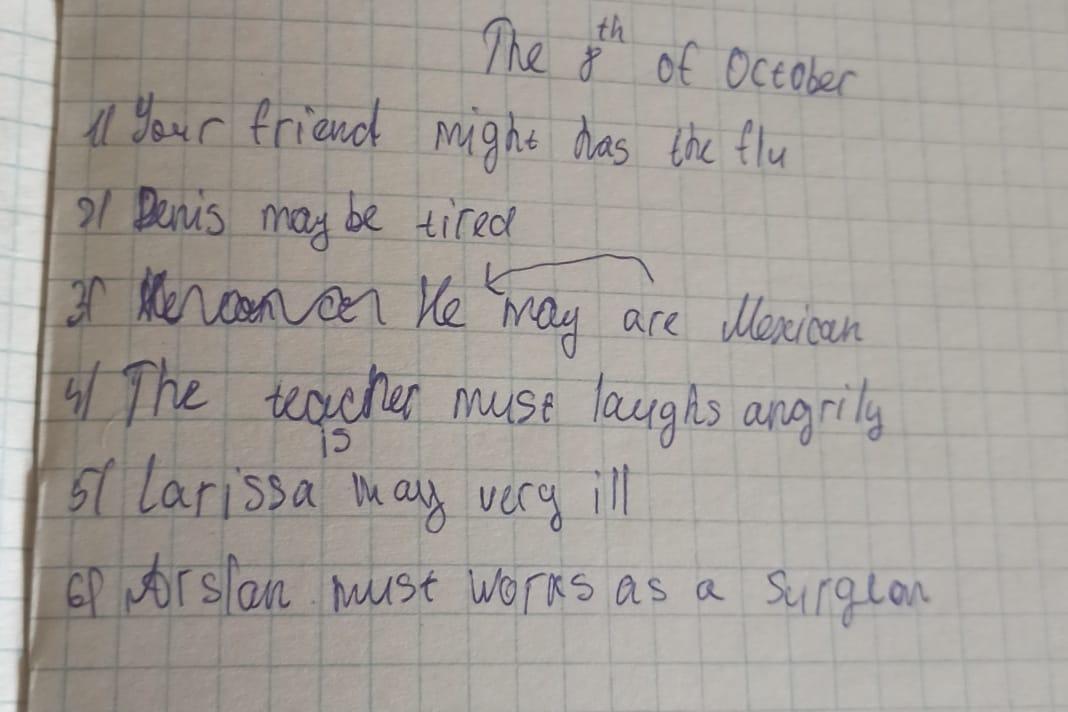 The 8th of October
1) Your friend might has the flu
2) Denis may be tired
3) He may are Mexican
4) The teacher must laughs angrily
is
5) Larissa may very ill
6) Arslan must works as a surgeon